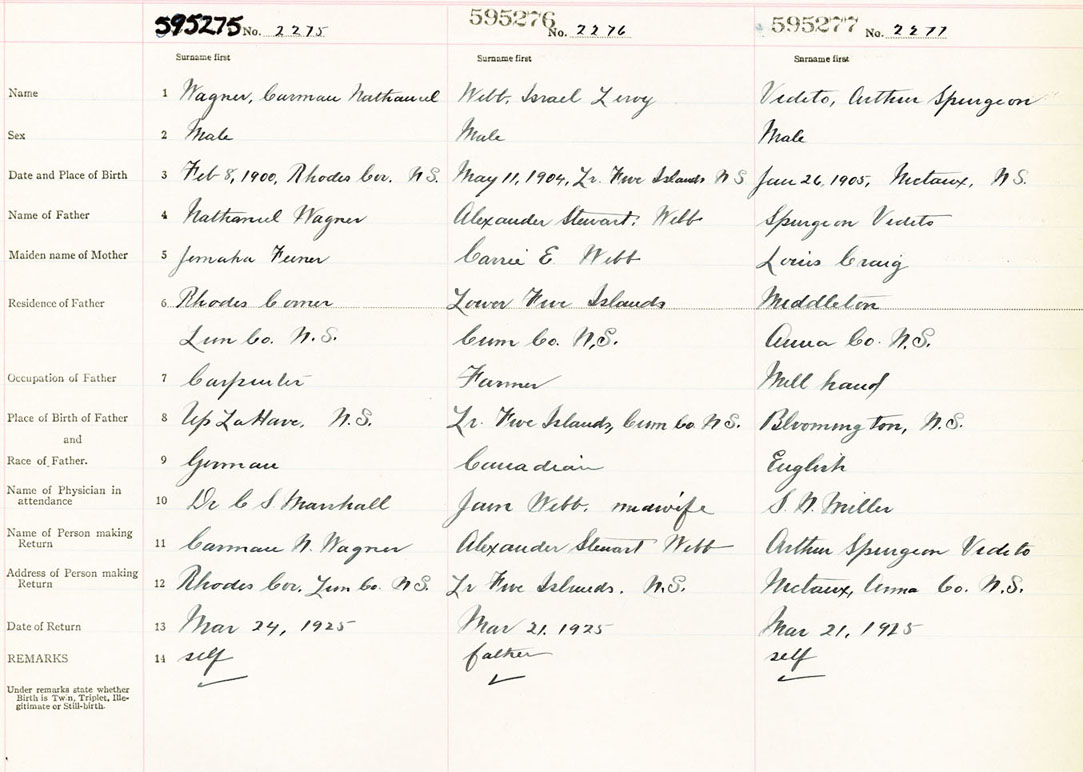 595275 No. 2275 595276 No. 2276 595277 No. 2277
Surname first Surname first Surname first
Name 1 Wagner, Carman Nathaniel Webb, Israel Leroy Vidito, Arthur Spurgeon
Sex 2 Male Male Male
Date and Place of Birth 3 Feb 8, 1900, Rhodes Cor. N.S. May 11, 1904, Lr. Five Islands N S Jan 26, 1905, Nictaux, N.S.
Name of Father 4 Nathaniel Wagner Alexander Stewart Webb Spurgeon Vidito
Maiden name of Mother 5 Jemaha Feener Carrie E Webb Louis Craig
Residence of Father 6 Rhodes Corner Lower Five Islands Middleton
Lun Co. N.S. Cum Co. N.S. Anna Co. N.S.
Occupation of Father 7 Carpenter Farmer Mill hand
Place of Birth of Father 8 Up LaHave, N.S. Lr. Five Islands, Cum Co. N.S. Bloomington, N.S.
and
Race of Father. 9 German Canadian English
Name of Physician in
attendance 10 Dr C S Marshall Jane Webb. midwife S. N. Miller
Name of Person making
Return 11 Carman N. Wagner Alexander Stewart Webb Arthur Spurgeon Vidito
Address of Person making
Return 12 Rhodes Cor. Lun Co. N.S. Lr Five Islands. N.S. Nictaux, Anna Co. N.S.
Date of Return 13 Mar 24, 1925 Mar 21. 1925 Mar 21, 1925
REMARKS 14 self father self
Under remarks state whether
Birth is Twin, Triplet, Ille-
gitimate or Still-birth.